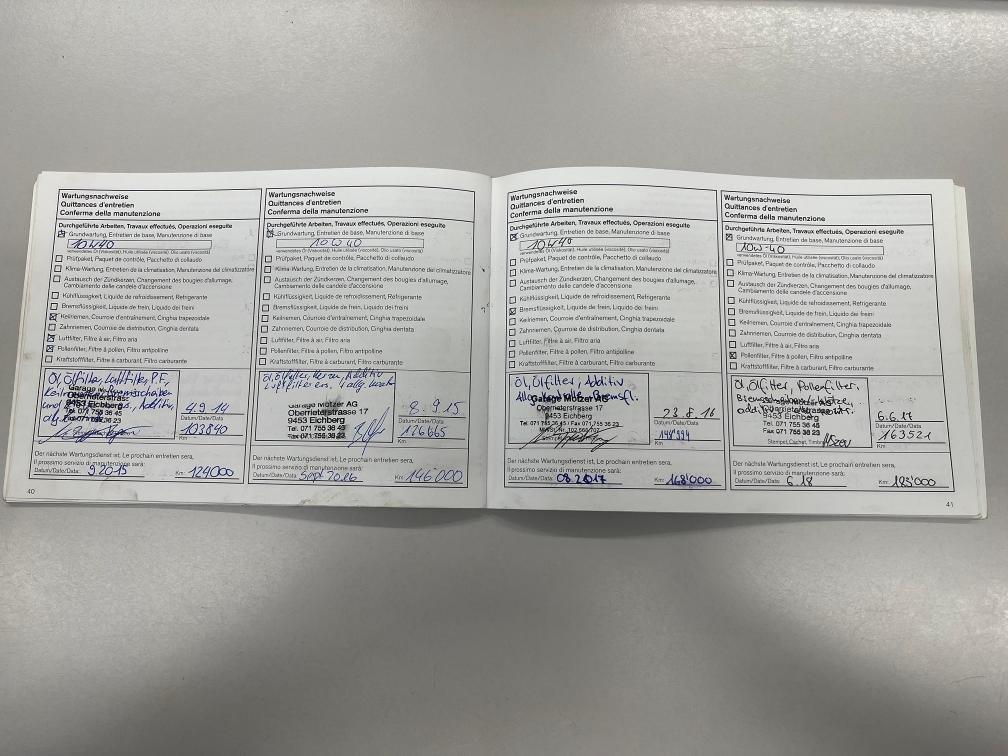 Wartungsnachweise
Quittances d'entretien
Conferma della manutenzione
Durchgeführte Arbeiten, Travaux effectués, Operazioni eseguite
Grundwartung, Entretien de base, Manutenzione di base
10W40
verwendetes Öl (Viskosität), Huile utilisée (viscosité), Olio usato (viscosità)
Prüfpaket, Paquet de contrôle, Pacchetto di collaudo
Klima-Wartung, Entretien de la climatisation, Manutenzione del climatizzatore
Austausch der Zündkerzen, Changement des bougies d'allumage,
Cambiamento delle candele d'accensione
Kühlflüssigkeit, Liquide de refroidissement, Refrigerante
Bremsflüssigkeit, Liquide de frein, Liquido dei freini
Keilriemen, Courroie d'entraînement, Cinghia trapezoidale
Zahnriemen, Courroie de distribution, Cinghia dentata
Luftfilter, Filtre à air, Filtro aria
Pollenfilter, Filtre à pollen, Filtro antipolline
Kraftstofffilter, Filtre à carburant, Filtro carburante
Öl, Ölfilter, Luftfilter, P.F.,
Bremsscheiben
und Additiv,
Garage
Oberrieterstrasse
9453 Eichberg
Tel. 071 755 36 45
4.9.14
Datum/Date/Data:
103840
Km
Der nächste Wartungsdienst ist, Le prochain entretien sera,
Il prossimo servizio di manutenzione sarà:
Datum/Date/Data: 9.2015 Km: 124000
40
Wartungsnachweise
Quittances d'entretien
Conferma della manutenzione
Durchgeführte Arbeiten, Travaux effectués, Operazioni eseguite
Grundwartung, Entretien de base, Manutenzione di base
10W40
verwendetes Öl (Viskosität), Huile utilisée (viscosité), Olio usato (viscosità)
Prüfpaket, Paquet de contrôle, Pacchetto di collaudo
Klima-Wartung, Entretien de la climatisation, Manutenzione del climatizzatore
Austausch der Zündkerzen, Changement des bougies d'allumage,
Cambiamento delle candele d'accensione
Kühlflüssigkeit, Liquide de refroidissement, Refrigerante
Bremsflüssigkeit, Liquide de frein, Liquido dei freini
Keilriemen, Courroie d'entraînement, Cinghia trapezoidale
Zahnriemen, Courroie de distribution, Cinghia dentata
Luftfilter, Filtre à air, Filtro aria
Pollenfilter, Filtre à pollen, Filtro antipolline
Kraftstofffilter, Filtre à carburant, Filtro carburante
Öl, Ölfilter, Additiv
Luftfilter
Garage Motzer AG
Oberrieterstrasse 17
9453 Eichberg
Tel. 071 755 36 45
Fax 071 755 36 23
8.9.15
Datum/Date/Data:
126665
Km
Der nächste Wartungsdienst ist, Le prochain entretien sera,
Il prossimo servizio di manutenzione sarà:
Datum/Date/Data: Sept 2016 Km: 146000
Wartungsnachweise
Quittances d'entretien
Conferma della manutenzione
Durchgeführte Arbeiten, Travaux effectués, Operazioni eseguite
Grundwartung, Entretien de base, Manutenzione di base
10W40
verwendetes Öl (Viskosität), Huile utilisée (viscosité), Olio usato (viscosità)
Prüfpaket, Paquet de contrôle, Pacchetto di collaudo
Klima-Wartung, Entretien de la climatisation, Manutenzione del climatizzatore
Austausch der Zündkerzen, Changement des bougies d'allumage,
Cambiamento delle candele d'accensione
Kühlflüssigkeit, Liquide de refroidissement, Refrigerante
Bremsflüssigkeit, Liquide de frein, Liquido dei freini
Keilriemen, Courroie d'entraînement, Cinghia trapezoidale
Zahnriemen, Courroie de distribution, Cinghia dentata
Luftfilter, Filtre à air, Filtro aria
Pollenfilter, Filtre à pollen, Filtro antipolline
Kraftstofffilter, Filtre à carburant, Filtro carburante
Öl, Ölfilter, Additiv
Bremsfl.
Garage Motzer AG
Oberrieterstrasse 17
9453 Eichberg
Tel. 071 755 36 45 / Fax 071 755 36 23
23.8.16
Datum/Date/Data:
Km
Der nächste Wartungsdienst ist, Le prochain entretien sera,
Il prossimo servizio di manutenzione sarà:
Datum/Date/Data: 08.2017 Km: 168'000
Wartungsnachweise
Quittances d'entretien
Conferma della manutenzione
Durchgeführte Arbeiten, Travaux effectués, Operazioni eseguite
Grundwartung, Entretien de base, Manutenzione di base
10W-40
verwendetes Öl (Viskosität), Huile utilisée (viscosité), Olio usato (viscosità)
Prüfpaket, Paquet de contrôle, Pacchetto di collaudo
Klima-Wartung, Entretien de la climatisation, Manutenzione del climatizzatore
Austausch der Zündkerzen, Changement des bougies d'allumage,
Cambiamento delle candele d'accensione
Kühlflüssigkeit, Liquide de refroidissement, Refrigerante
Bremsflüssigkeit, Liquide de frein, Liquido dei freini
Keilriemen, Courroie d'entraînement, Cinghia trapezoidale
Zahnriemen, Courroie de distribution, Cinghia dentata
Luftfilter, Filtre à air, Filtro aria
Pollenfilter, Filtre à pollen, Filtro antipolline
Kraftstofffilter, Filtre à carburant, Filtro carburante
Öl, Ölfilter, Pollenfilter,
9453 Eichberg
Tel. 071 755 36 45
Fax 071 755 36 23
Stempel, Cachet, Timbro
6.6.17
Datum/Date/Data:
163521
Km
Der nächste Wartungsdienst ist, Le prochain entretien sera,
Il prossimo servizio di manutenzione sarà:
Datum/Date/Data: 6.18 Km: 183'000
41